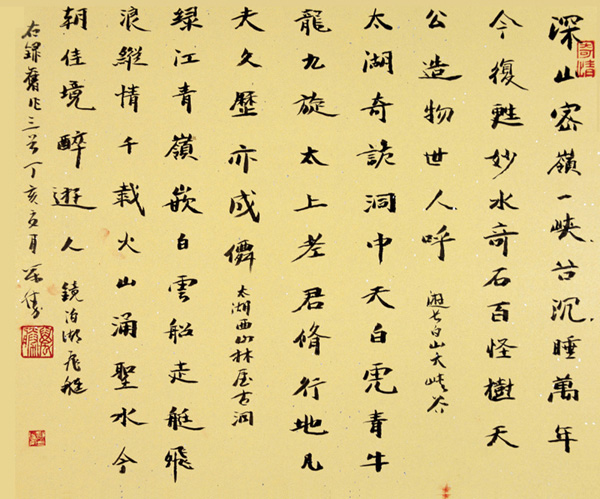 深山密嶺一峽谷沉睡萬年
今復甦妙水奇石百怪樹天
公造物世人呼 遊長白山大峽谷
太湖奇詭洞中天白霓青牛
龍九旋太上老君脩行地凡
夫久歷亦成僊 太湖西山林屋古洞
綠江青嶺嵌白雲船走艇飛
浪縱情千載火山涌聖水今
朝佳境醉遊人 鏡泊湖飛艇
右錄舊作三首丁亥五月